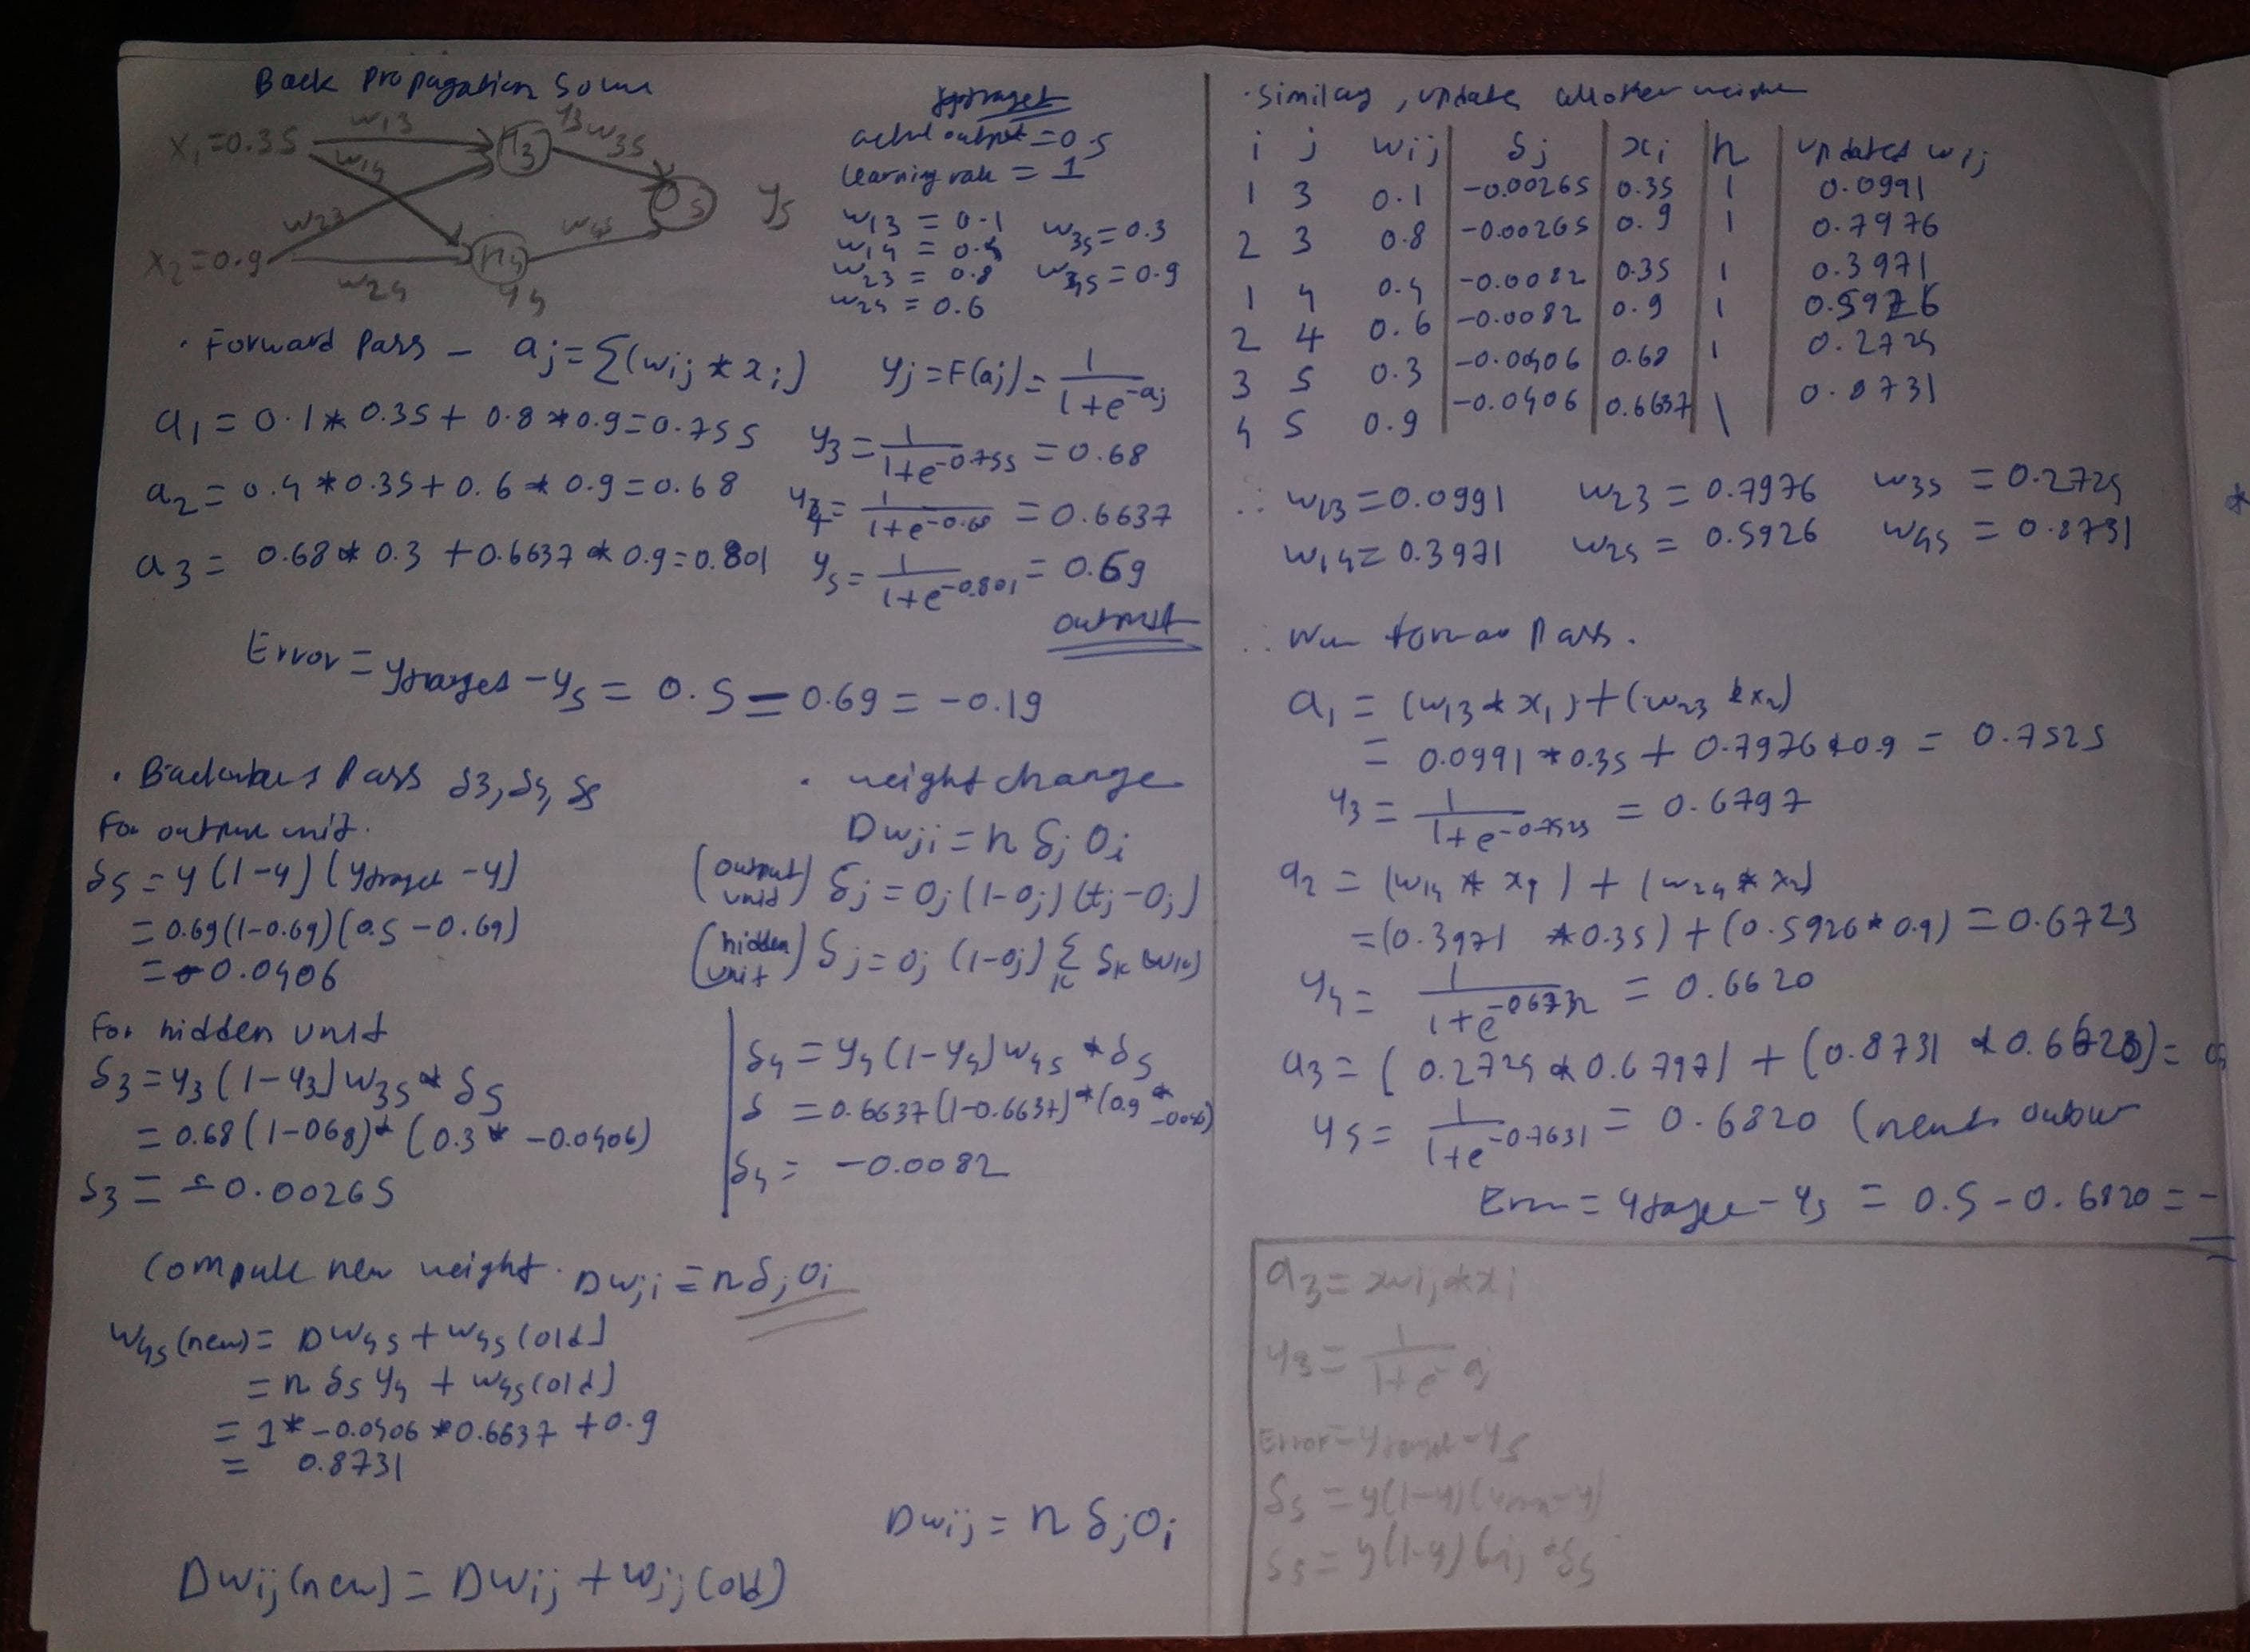 Back Propagation Sum
x₁=0.35
w13
w14
H3
y3
w35
x₂=0.9
w23
w24
H4
y4
w45
O5
y5
actul output = 0.5
learning rate = 1
w13 = 0.1
w14 = 0.4
w23 = 0.8
w24 = 0.6
w35 = 0.3
w45 = 0.9
· Forward Pass - aj = Σ(wij * xi) yj = F(aj) = 1/(1+e^-aj)
a1 = 0.1 * 0.35 + 0.8 * 0.9 = 0.755 y3 = 1/(1+e^-0.755) = 0.68
a2 = 0.4 * 0.35 + 0.6 * 0.9 = 0.68 y4 = 1/(1+e^-0.68) = 0.6637
a3 = 0.68 * 0.3 + 0.6637 * 0.9 = 0.801 y5 = 1/(1+e^-0.801) = 0.69
output
Error = ytarget - y5 = 0.5 - 0.69 = -0.19
· Backward Pass δ3, δ4, δ5
For output unit.
δ5 = y(1-y)(ytarget - y)
= 0.69(1-0.69)(0.5 - 0.69)
= -0.0406
For hidden unit
δ3 = y3(1-y3)w35 * δ5
= 0.68(1-068)*(0.3 * -0.0406)
δ3 = -0.00265
· weight change
Dwji = n δj Oi
(output unit) δj = Oj(1-Oj)(tj-Oj)
(hidden unit) δj = Oj(1-Oj) Σk δk wjk)
δ4 = y4(1-y4)w45 * δ5
δ = 0.6637(1-0.6637)*(0.9 * -0.0406)
δ4 = -0.0082
Compute new weight. Dwji = n δj Oi
w45(new) = Dw45 + w45(old)
= n δ5 y4 + w45(old)
= 1 * -0.0406 * 0.6637 + 0.9
= 0.8731
Dwij = n δj Oi
Dwij(new) = Dwij + wij(old)
· similay, update all other weight
i j wij δj xi n updated wij
1 3 0.1 -0.00265 0.35 1 0.0991
2 3 0.8 -0.00265 0.9 1 0.7976
1 4 0.4 -0.0082 0.35 1 0.3971
2 4 0.6 -0.0082 0.9 1 0.5926
3 5 0.3 -0.0406 0.68 1 0.2724
4 5 0.9 -0.0406 0.6637 1 0.8731
∴ w13 = 0.0991 w23 = 0.7976 w35 = 0.2724
w14 = 0.3971 w24 = 0.5926 w45 = 0.8731
Pass.
a1 = (w13 * x1) + (w23 * x2)
= 0.0991 * 0.35 + 0.7976 * 0.9 = 0.7525
y3 = 1/(1+e^-0.7525) = 0.6797
a2 = (w14 * x1) + (w24 * x2)
= (0.3971 * 0.35) + (0.5926 * 0.9) = 0.6723
y4 = 1/(1+e^-06732) = 0.6620
a3 = (0.2724 * 0.6797) + (0.8731 * 0.6620) = 0
y5 = 1/(1+e^-0.7631) = 0.6820
Error = ytarget - y5 = 0.5 - 0.6820 = -
a3 = wij * xi
y3 = 1/(1+e^-aj)
Error = ytarget - y5
δ5 = y(1-y)(